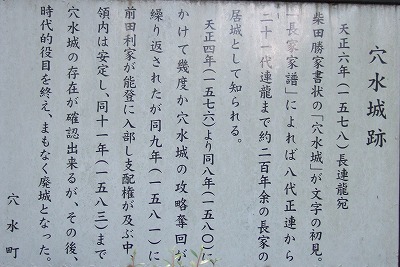 穴水城跡
天正六年(一五七八)長連龍宛
柴田勝家書状の「穴水城」が文字の初見。
「長家家譜」によれば八代正連から
二十一代連龍まで約二百年余の長家の
居城として知られる。
天正四年(一五七六)より同八年(一五八〇)に
かけて幾度か穴水城の攻略奪回が
繰り返されたが同九年(一五八一)に
前田利家が能登に入部し支配権が及ぶ中
領内は安定し、同十一年(一五八三)まで
穴水城の存在が確認出来るが、その後、
時代的役目を終え、まもなく廃城となった。
穴水町